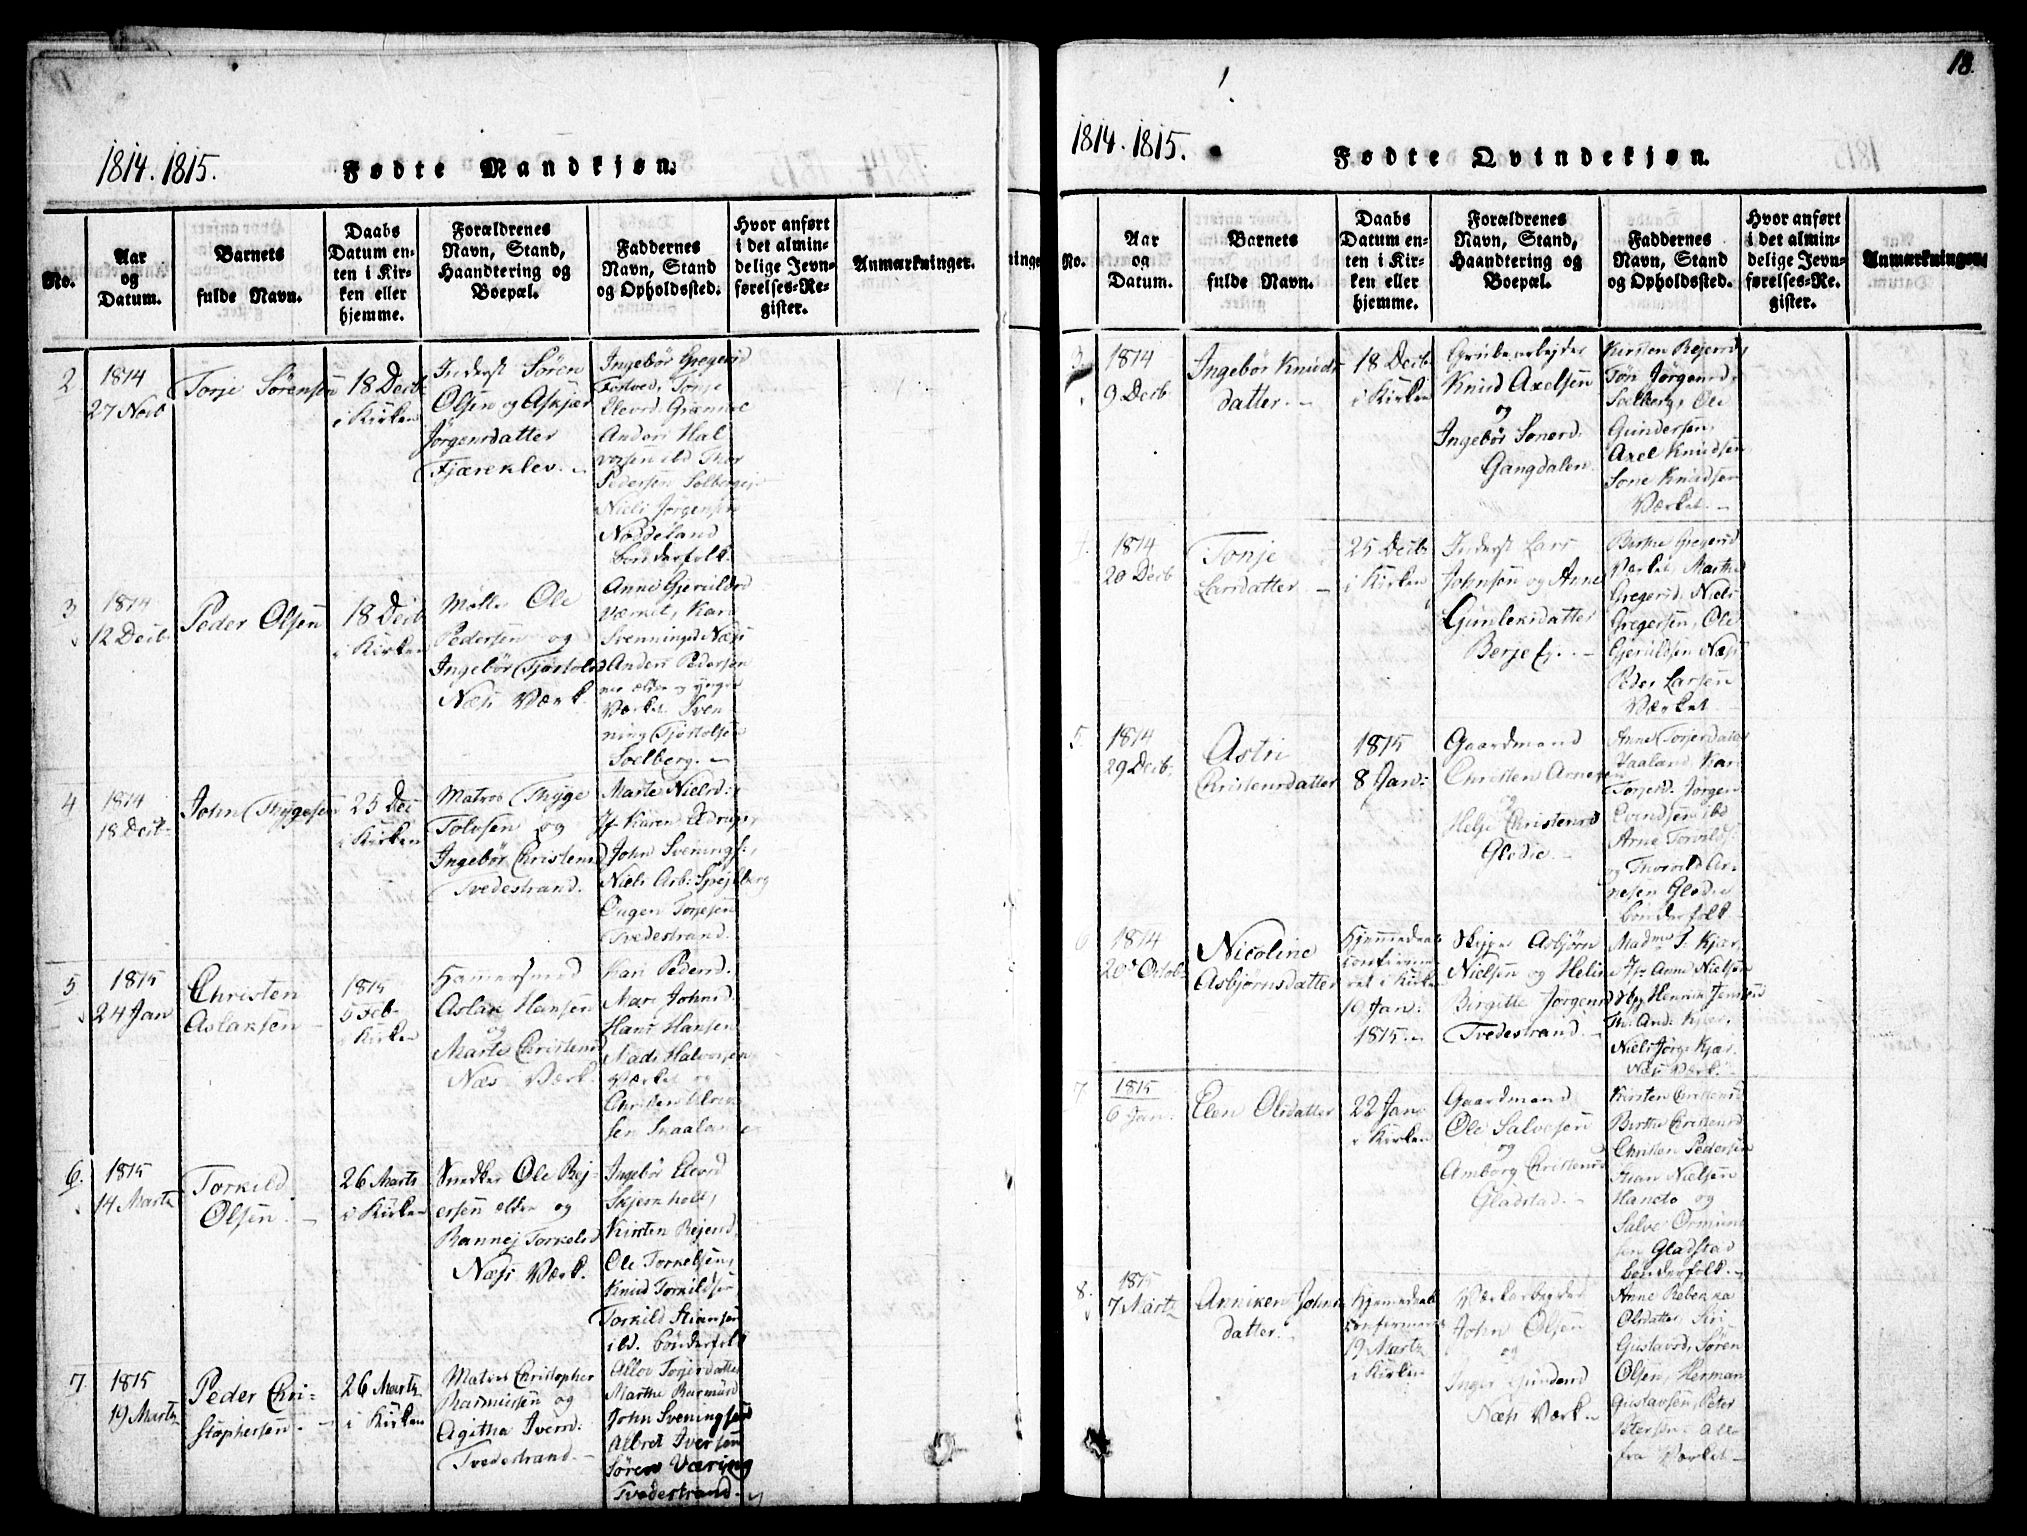 1814. 1815.
Fødte Mandkjøn.
No.
Aar
og
Datum.
Barnets
fulde Navn.
Daabs
Datum en-
ten i Kir-
ken eller
hjemme.
Forældrenes
Navn, Stand,
Haandtering og
Boepæl.
Faddernes
Navn, Stand
og Opholdssted.
Hvor anført
i det almin-
delige Jevn-
førelses-Re-
gister.
Anmærkninger.
2
1814
27 Novb
Torje Sørensen
18 Decb
i Kirken
Inderst Sören
Olsen og Askjær
Jörgensdatter
Fjæreklev.
Ingebör Gregersd
Fosved, Tonje
Elevd. Grømme
Anders Hal
vorsen ibd Thor
Pedersen Solberg
Niels Jörgensen
Nöddeland
bönderfolk
3
1814
12 Decb
Peder Olsen
18 Decb
i Kirken
Möller Ole
Pedersen og
Ingebör Tjöstolsd
Næs Værk.
Anne Gjeruldsd
Værket, Kari
Svenningsd Næs
Anders Pedersen
ældre og yngre
Værket Sven
ning Tjöstolsen
Solberg.
4
1814
18 Decb
John Thygesen
25 Dec
i Kirken
Matros Thyge
Tolvsen og
Ingebör Christensd
Tvedestrand.
Marte Nielsd.
Jf. Karen
John Svenings:
Niels Arb: Spejlberg
Ougen Torjesen
Tvedestrand.
5
1815
24 Jan
Christen
Aslaksen
1815
5 Feb.
i Kirken
Hamersmed
Aslak Hansen
og
Marte Christensd
Næs Værk.
Kari Pedersd.
Mari Johnsd.
Hans Hansen
Mads Halvorsen
Værket og
Christen
sen Skaaland
6.
1815
14 Marts
Torkild
Olsen.
26 Marts
i Kirken
Snedker Ole Rej-
ersen ældre og
Rannej Torkelsd
Næs Værk.
Ingebör Elevsd
Skjernhole,
Kirsten Rejersd,
Ole Torkelsen,
Knud Torkildsen
Torkild Stiansen
ibd. bönderfolk
7.
1815
19 Marts
Peder Chri-
stophersen.
26 Marts
i Kirken
Matros Christopher
Rasmussen og
Agitha Iversd:
Tvedestrand.
Allov Torjersdatter
Marthe Rasmusd
John Sveningsen
Albret Iversen
Sören Væring
Tvedestrand.
18.
1814. 1815.
Fødte Qvindekjøn.
No.
Aar
og
Datum.
Barnets
fulde Navn.
Daabs
Datum en-
ten i Kir-
ken eller
hjemme.
Forældrenes
Navn, Stand,
Haandtering og
Boepæl.
Faddernes
Navn, Stand
og Opholdssted.
Hvor anført
i det almin-
delige Jevn-
førelses-Re-
gister.
Anmærkninger.
3
1814
9 Decb
Ingebör Knuds
datter.
18 Decb
i Kirken
Grubearbejder
Knud Axelsen
og
Ingebör Sonesd.
Gangdalen
Kirsten Rejersd,
Tön Jörgensd.
Solberg, Ole
Gundersen,
Axel Knudsen
Sone Knudsen
Værket.
1814
20 Decb
Tonje
Larsdatter
25 Decb
i Kirken
Inderst Lars
Johnsen og Anne
Gunleksdatter
Berje
Berthe Gregersd
Værket, Marthe
Gregersd, Niels
Gregersen, Ole
Gjeruldsen Næs
Peder Larsen
Værket
5.
1814
29 Decb.
Astri
Christensdatter
1815
8 Jan:
Gaardmand
Christen Arnesen
og
Helje Christensd
Glödie.
Anne Torjersdatter
Kari
Torjersd. Jörgen
Evindsen ibd
Arne Torvilds
og Thorvold Ar-
nesen Glödie
bönderfolk
6
1814
20 Octob
Nicoline
Asbjørnsdatter
Hjemmedöbt
confirme
ret i Kirken
10 Jan:
1815.
Skipper Asbjörn
Nielsen og Heline
Birgitte Jörgensd
Tvedestrand.
Madme S. Kjær,
Jfr Anne Nielsen
Henrik Jensen
Th. And: Kjær,
Niels Jörg: Kjær
Næs Værk.
7
1815
6 Jan.
Elen Olsdatter
22 Jan
i Kirken
Gaardmand
Ole Salvesen
og
Amborg Christensd
Gladstad.
Kirsten Christensd
Berthe Christensd
Christen Pedersen
Nielsen
Hanto og
Salve Ormund
sen Gladstad
bönderfolk.
8.
1815
7 Marts
Anniken Johns
datter.
Hjemmedöbt
confirmeret
19 Marts
i Kirken
Værksarbejder
John Olsen
og
Inger Gundersd
Næs Værk
Anne Rebekka
Olsdatter, Siri
Gustavsd, Sören
Olsen, Herman
Gustavsen, Peter
Petersen. alle
fra Værket